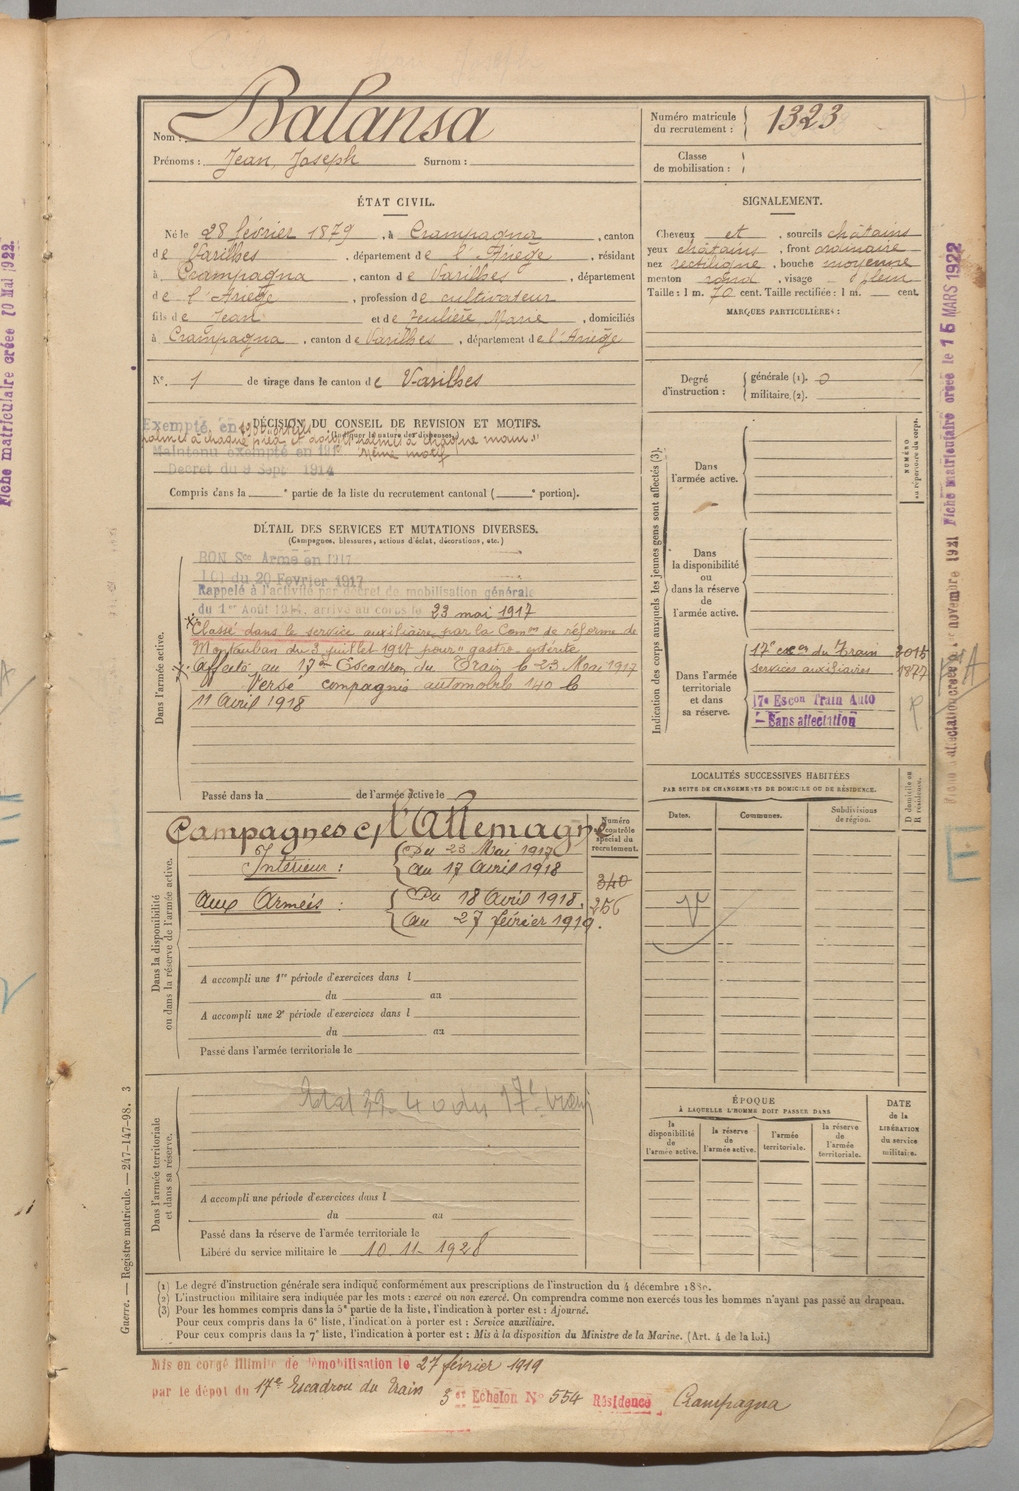 Nom : Balansa
Prénoms : Jean, Joseph Surnom :
Numéro matricule du recrutement : 1323
Classe de mobilisation :
ÉTAT CIVIL.
Né le 28 février 1879, à Crampagna, canton
de Varilhes, département de l'Ariège, résidant
à Crampagna, canton de Varilhes, département
de l'Ariège, profession de cultivateur
fils de Jean et de Marie, domiciliés
à Crampagna, canton de Varilhes, département de l'Ariège
N°. 1 de tirage dans le canton de Varilhes
SIGNALEMENT.
Cheveux et, sourcils châtains
yeux châtains, front ordinaire
nez rectiligne, bouche moyenne
menton rond, visage plein
Taille : 1 m. 70 cent. Taille rectifiée : 1 m. cent.
MARQUES PARTICULIÈRES :
Degré d'instruction : générale (1). 0
militaire. (2).
DÉCISION DU CONSEIL DE REVISION ET MOTIFS.
Exempté, en
à chaque pied et à chaque main"
Maintenu exempté en même motif
Décret du 9 Sept 1914
Compris dans la e partie de la liste du recrutement cantonal ( e portion).
DÉTAIL DES SERVICES ET MUTATIONS DIVERSES.
(Campagnes, blessures, actions d'éclat, décorations, etc.)
Dans l'armée active.
BON Sce Armé en 1917
Loi du 20 Février 1917
Rappelé à l'activité par décret de mobilisation générale
du 1er Août 1914, arrivé au corps le 23 mai 1917
Classé dans le service auxiliaire par la Comon de réforme de
Montauban du 3 juillet 1917 pour "gastro-entérite
affecté au 17e Escadron du Train le 23 Mai 1917
Versé compagnie automobile 140 le
11 avril 1918
Passé dans la de l'armée active le
Indication des corps auxquels les jeunes gens sont affectés (3).
NUMÉRO au répertoire du corps.
Dans l'armée active.
Dans la disponibilité ou dans la réserve de l'armée active.
Dans l'armée territoriale et dans sa réserve.
17e escon du Train 3015
services auxiliaires 1877
17e Escon Train Auto
- Sans affectation
LOCALITÉS SUCCESSIVES HABITÉES
PAR SUITE DE CHANGEMENTS DE DOMICILE OU DE RÉSIDENCE.
D domicile ou R résidence.
Dates. Communes. Subdivisions de région.
Dans la disponibilité ou dans la réserve de l'armée active.
Campagnes c/ l'Allemagne
Numéro au contrôle spécial du recrutement.
Intérieur : Du 23 Mai 1917
au 17 Avril 1918
340
256
Aux Armées : Du 18 Avril 1918.
au 27 février 1919.
A accompli une 1re période d'exercices dans l
du au
A accompli une 2e période d'exercices dans l
du au
Passé dans l'armée territoriale le
Dans l'armée territoriale et dans sa réserve.
39-40 du 17e train
A accompli une période d'exercices dans l
du au
Passé dans la réserve de l'armée territoriale le
Libéré du service militaire le 10-11-1928
ÉPOQUE
À LAQUELLE L'HOMME DOIT PASSER DANS
la disponibilité de l'armée active.
la réserve de l'armée active.
l'armée territoriale.
la réserve de l'armée territoriale.
DATE de la LIBÉRATION du service militaire.
(1) Le degré d'instruction générale sera indiqué conformément aux prescriptions de l'instruction du 4 décembre 1889.
(2) L'instruction militaire sera indiquée par les mots : exercé ou non exercé. On comprendra comme non exercés tous les hommes n'ayant pas passé au drapeau.
(3) Pour les hommes compris dans la 5e partie de la liste, l'indication à porter est : Ajourné.
Pour ceux compris dans la 6e liste, l'indication à porter est : Service auxiliaire.
Pour ceux compris dans la 7e liste, l'indication à porter est : Mis à la disposition du Ministre de la Marine. (Art. 4 de la loi.)
Mis en congé illimité de démobilisation le 27 février 1919
par le dépôt du 17e Escadron du Train 3er Echelon N° 554 Résidence Crampagna
Guerre. — Registre matricule. — 247-147-98. 3
Fiche matriculaire créée le 15 MARS 1922
Fiche d'affectation créée le 1er novembre 1921
Fiche matriculaire créée 20 Mai 1922.